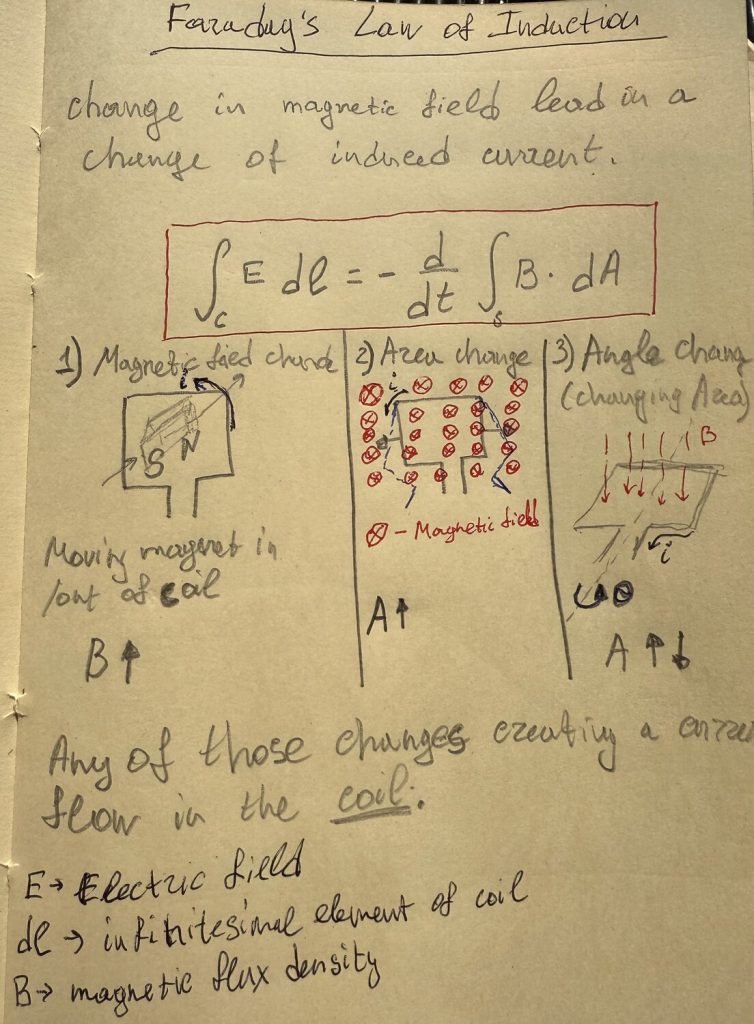 Faraday's Law of Induction
change in magnetic field lead in a
change of induced current.
∫_C E dl = - d/dt ∫_S B · dA
1) Magnetic field
i
S N
Moving magnet in
/out of coil
B ↑
2) Area change
i
⊗ - Magnetic field
A ↑
3) Angle chang
(changing Area)
B
i
A ↑ ↓
Any of those changes creating a curre
flow in the coil.
E → Electric field
dl → infinitesimal element of coil
B → magnetic flux density